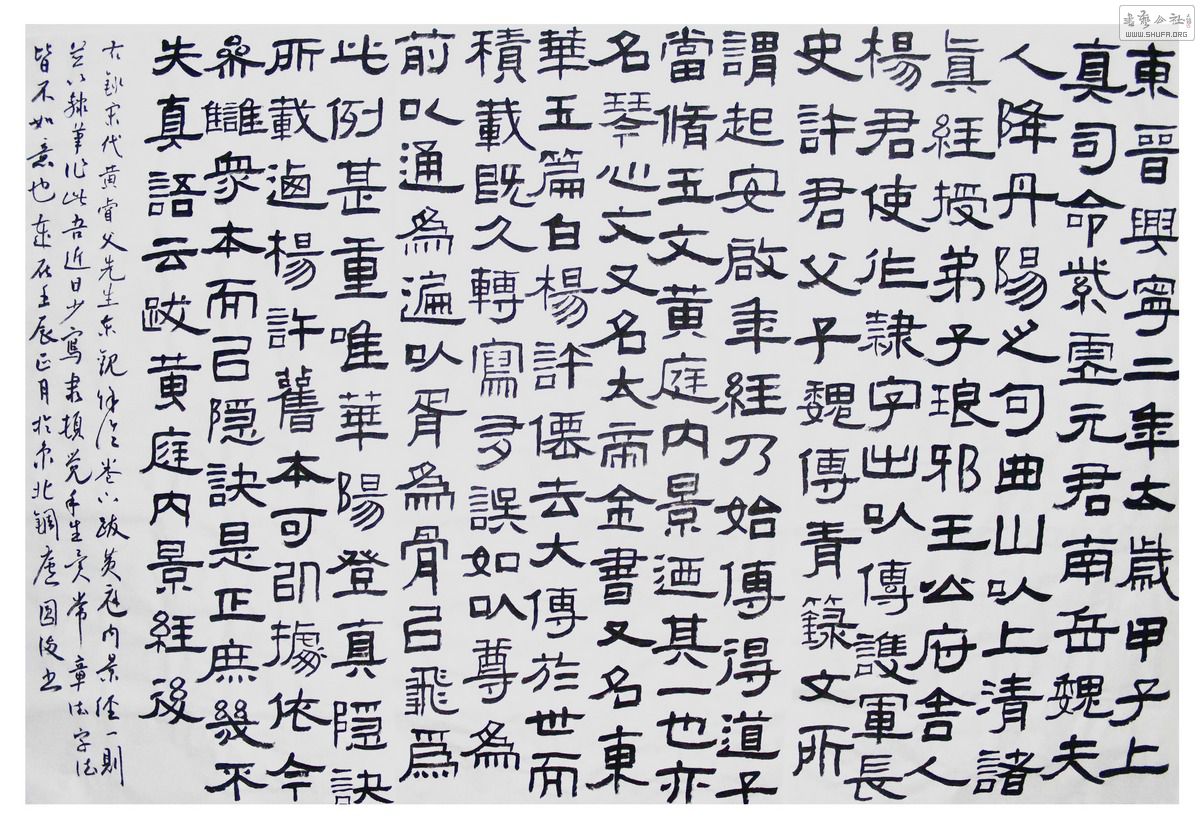 東晉興寧二年太歲甲子上
真司命紫虛元君南岳魏夫
人降丹陽之句曲山以上清諸
眞經授弟子琅邪王公府舍人
楊君使作隸字出以傳護軍長
史許君父子魏傳青籙文所
謂起安啟年經乃始傳得道子
當脩玉文黃庭內景迺其一也亦
名琴心文又名太帝金書又名東
華玉篇自楊許僊去大傳於世而
積載既久轉寫多誤如以尊為
前以通為遍以胥為骨以飛為
此例甚重唯華陽登真隱訣
所載迺楊許舊本可以據依今
參讎衆本而以隱訣是正庶幾不
失真語云跋黃庭內景經後
右錄宋代黃睿父先生东觀餘論卷下跋黃庭內景經一則
以隸筆作此吾近日少寫隸頓觉手生常章法字法
皆不如意也 在壬辰正月於京北銅廬
WWW.SHUFA.ORG